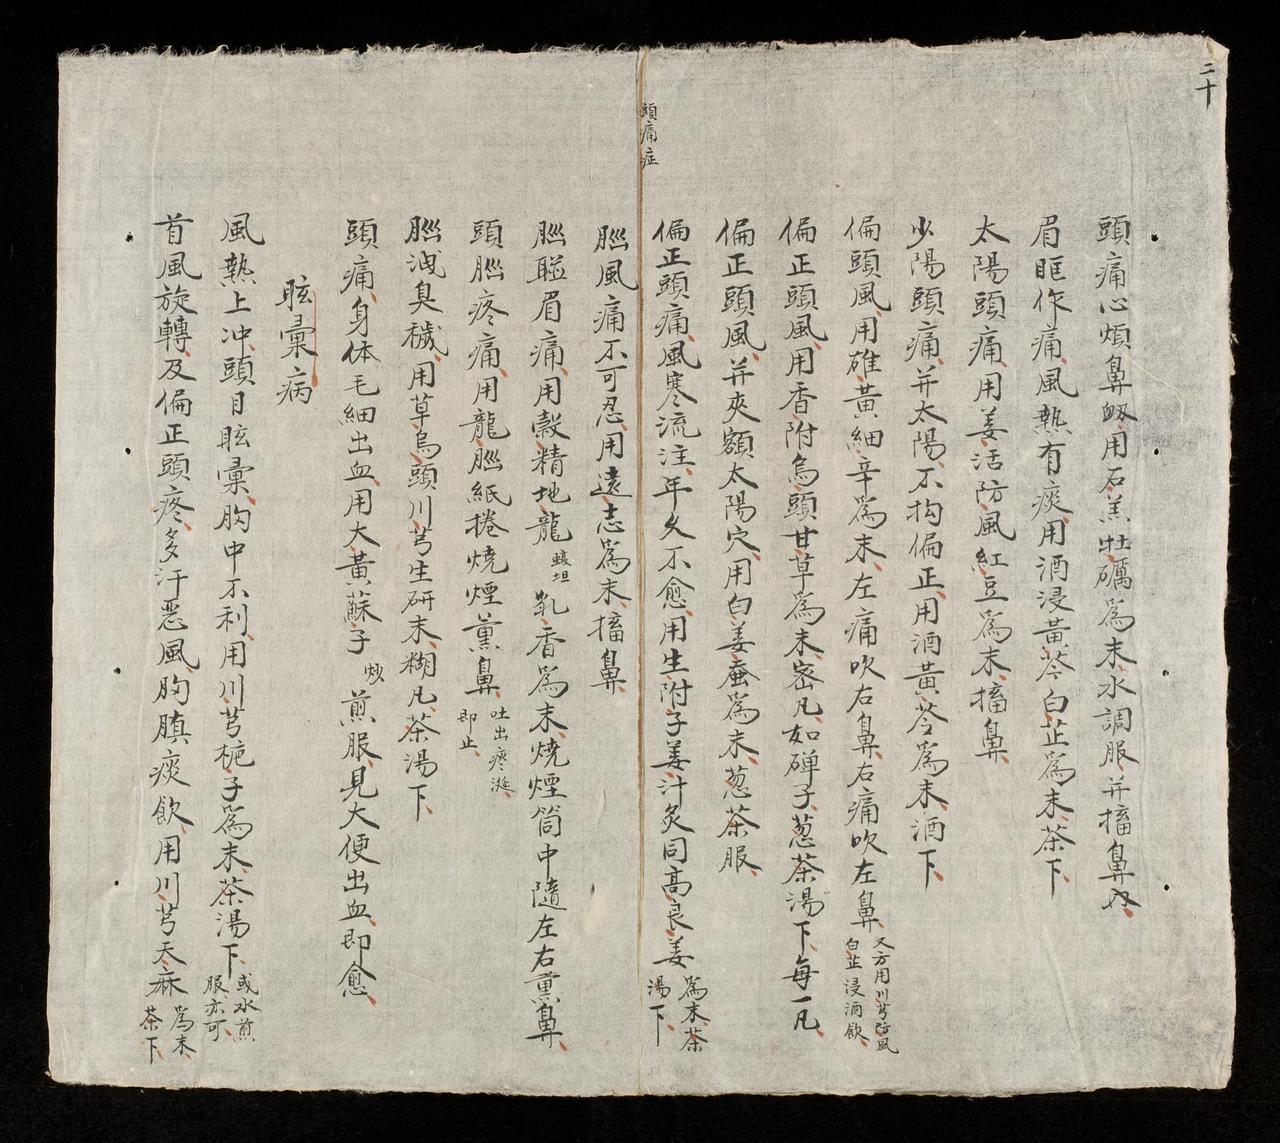 二十
頭痛心煩鼻衂、用石羔牡礪為末、水調服并搐鼻內、
眉眶作痛、風熱有痰、用酒浸黃芩白芷為末、茶下、
太陽頭痛、用姜活防風紅豆為末、搐鼻、
少陽頭痛、并太陽、不拘偏正、用酒黃芩為末、酒下、
偏頭風、用碓黃細辛為末、左痛吹右鼻、右痛吹左鼻、又方用川芎防風白芷浸酒飲、
偏正頭風、用香附烏頭甘草為末、密凡、如磾子、葱茶湯下、每一凡、
偏正頭風、并夾額太陽穴、用白姜蚕為末、葱茶服
頭痛症
偏正頭痛、風寒流注、年久不愈、用生附子姜汁炙同高良姜為末、茶湯下、
腦風痛不可忍、用遠志為末、搐鼻、
腦聡眉痛、用穀精地龍蟥坦乳香為末、燒煙筒中隨左右薰鼻、
頭腦疼痛、用龍腦紙捲燒煙薰鼻、吐出痰涎、即止、
腦洩臭穢、用草烏頭川芎生研末、糊凡、茶湯下、
頭痛、身体毛細出血、用大黃蘇子炒煎服、見大便出血、即愈、
眩彙病
風熱上冲、頭目眩彙、胸中不利、用川芎梔子為末、茶湯下、或水煎服亦可、
首風旋轉、及偏正頭疼、多汗惡風、胸膹痰飲、用川芎天麻為末、茶下、